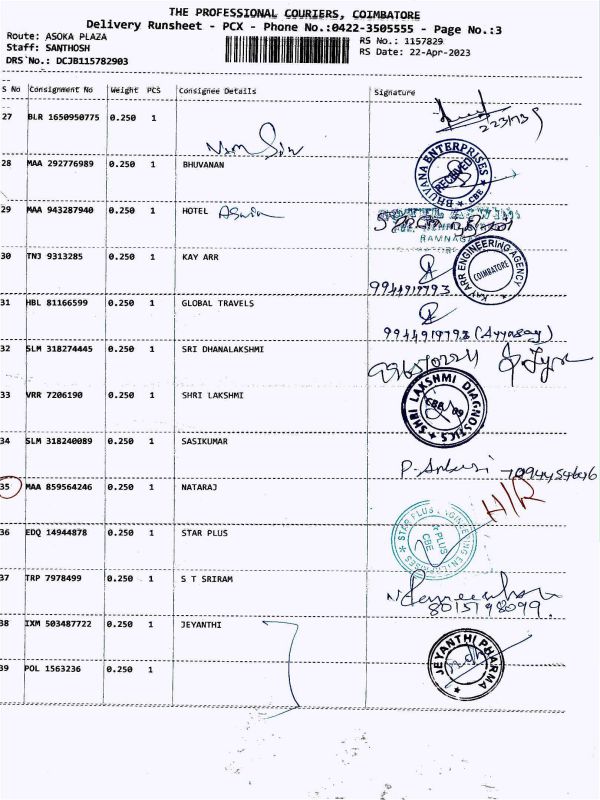 THE PROFESSIONAL COURIERS, COIMBATORE
Delivery Runsheet - PCX - Phone No.:0422-3505555 - Page No.:3
Route: ASOKA PLAZA
RS No.: 1157829
Staff: SANTHOSH
RS Date: 22-Apr-2023
DRS No.: DCJB115782903
S No Consignment No Weight PCS Consignee Details Signature
27 BLR 1650950775 0.250 1
28 MAA 292776989 0.250 1 BHUVANAN
BHUVANA ENTERPRISES RECEIVED CBE
29 MAA 943287940 0.250 1 HOTEL Aswin
30 TN3 9313285 0.250 1 KAY ARR
KAY ARR ENGINEERING AGENCY COIMBATORE
9944919793
31 HBL 81166599 0.250 1 GLOBAL TRAVELS
9944919793 (Ayyasay)
32 SLM 318274445 0.250 1 SRI DHANALAKSHMI
33 VRR 7206190 0.250 1 SHRI LAKSHMI
SHRI LAKSHMI DIAGNOSTICS
34 SLM 318240089 0.250 1 SASIKUMAR
35 MAA 859564246 0.250 1 NATARAJ
H/R
36 EDQ 14944878 0.250 1 STAR PLUS
STAR PLUS ENGINEERING ENTERPRISES PLUS CBE
37 TRP 7978499 0.250 1 S T SRIRAM
8015198099
38 IXM 503487722 0.250 1 JEYANTHI
JEYANTHI PHARMA
39 POL 1563236 0.250 1